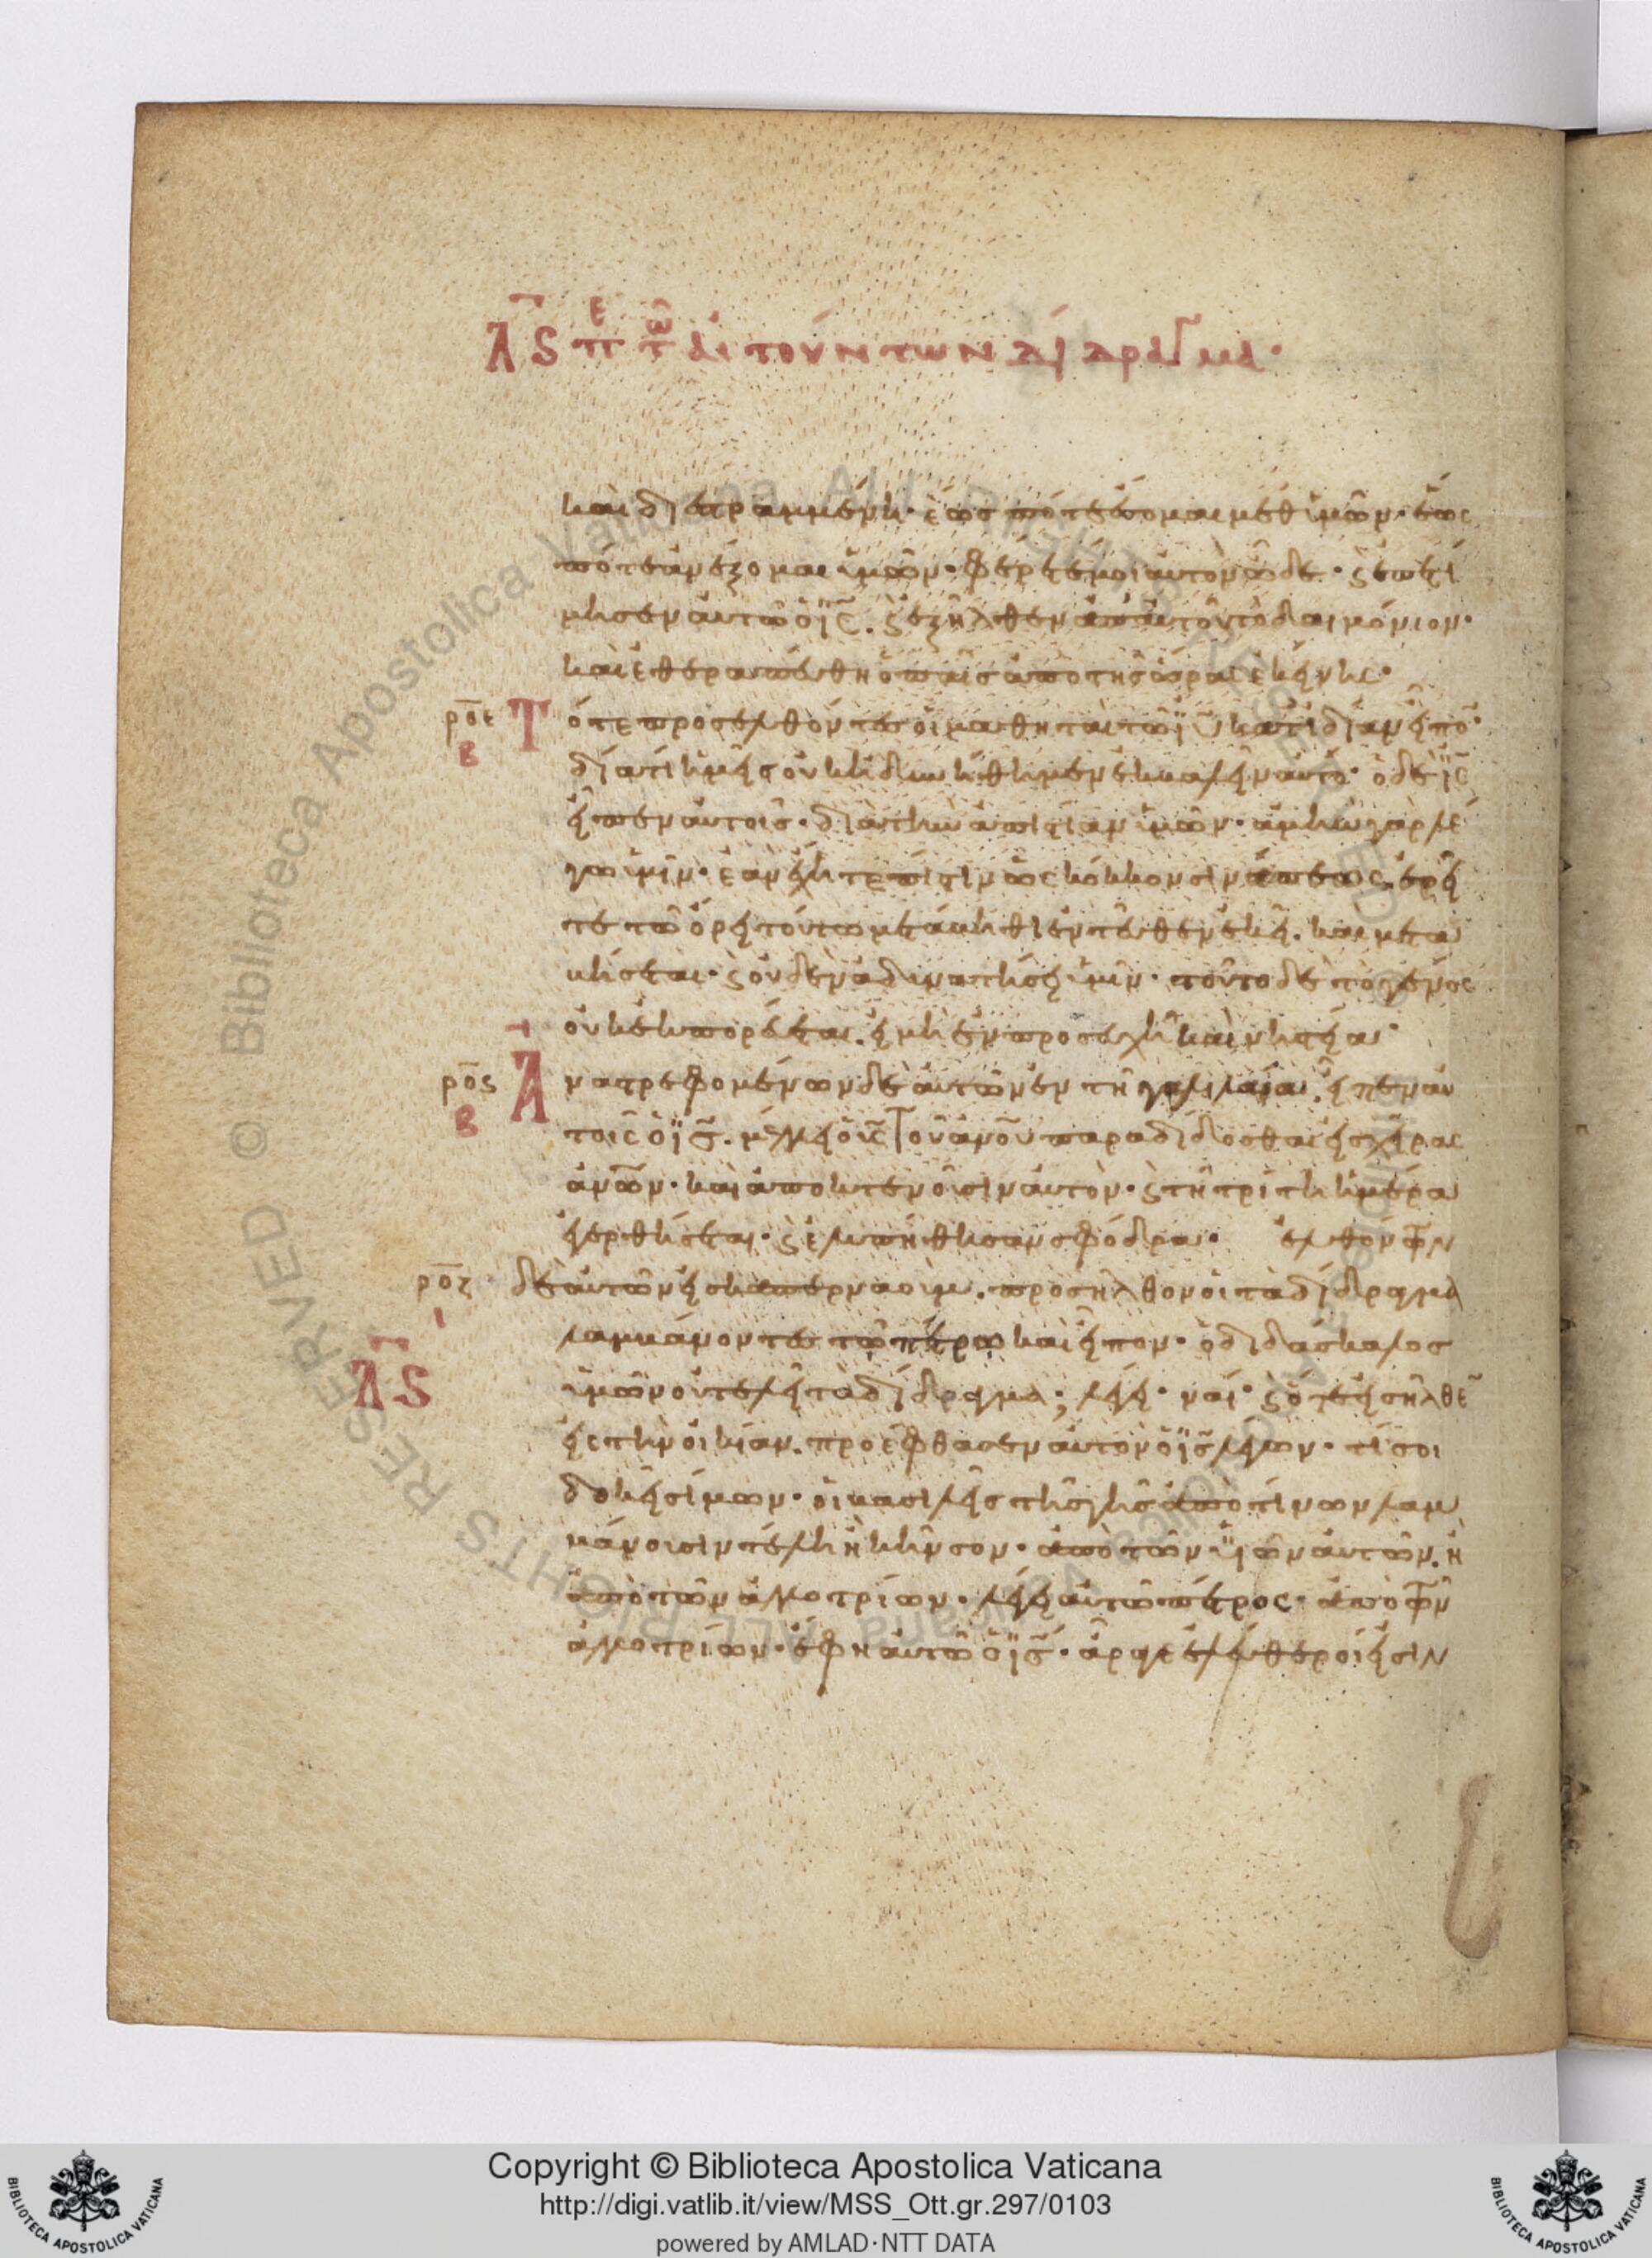 Λς πε τῶ αἰτούντων δίδραγμα·
καὶ διεστραμμένη· ἕως πότε ἔσομαι μεθ ὑμῶν· ἕως
πότε ἀνέξομαι ὑμῶν· φέρετέ μοι αὐτὸν ὧδε· ϛ ἐπετί
μησεν αὐτῶ ὁ ις̅. ϛ ἐξῆλθεν ἀπ αὐτοῦ τὸ δαιμόνιον·
καὶ ἐθεραπεύθη ὁ παῖς ἀπὸ τῆς ὥρας ἐκείνης·
ρο̅ε Τότε προσελθόντες οἱ μαθηταὶ τῶ ιυ̅ κατιδίαν εἶπο̅·
β
διατί ἡμεῖς οὐκ ἠδυνήθημεν ἐκβαλεῖν αὐτό· ὁ δὲ ις̅
εἶπεν αὐτοῖς· διὰ τὴν ἀπιστίαν ὑμῶν· ἀμὴν γὰρ λέ
γω ὑμῖν· ἐὰν ἔχητε πίστιν ὡς κόκκον σινάπεως, ἐρεῖ
τε τῶ ὄρει τούτω μετάβηθι ἐντεῦθεν ἐκεῖ. καὶ μετα
βήσεται· ϛ οὐδὲν ἀδυνατήσει ὑμῖν· τοῦτο δὲ τὸ γένος
οὐκ ἐκπορεύεται. εἰ μὴ ἐν προσευχῆ καὶ νηστεία·
ρο̅ς Ἀναστρεφομένων δὲ αὐτῶν ἐν τῆ γαλιλαία. εἶπεν αὐ
β
τοῖς ὁ ις̅. μέλλει ὁ υις̅ τοῦ ἀνου̅ παραδίδοσθαι εἰς χεῖρας
ἀνω̅ν· καὶ ἀποκτενοῦσιν αὐτὸν· ϛ τῆ τρίτη ἡμέρα
ἐγερθήσεται· ϛ ἐλυπήθησαν σφόδρα· ἐλθόντων
ρο̅ζ δὲ αὐτῶν εἰς καπερναούμ. προσῆλθον οἱ τὰ δίδραγμα
ι
λαμβάνοντες τῶ πέτρω καὶ εἶπον· ὁ διδάσκαλος
Λς ὑμῶν οὐ τελεῖ τὰ δίδραγμα; λέγει· ναί· ϛ ὅτε εἰσῆλθε̅
εἰς τὴν οἰκίαν. προέφθασεν αὐτὸν ὁ ις̅ λέγων· τί σοι
δοκεῖ σίμων· οἱ βασιλεῖς τῆς γῆς ἀπὸ τίνων λαμ
βάνουσιν τέλη ἢ κῆνσον· ἀπὸ τῶν υἱῶν αὐτῶν. ἢ
ἀπὸ τῶν ἀλλοτρίων· λέγει αὐτῶ πέτρος· ἀπὸ τῶν
ἀλλοτρίων· ἔφη αὐτῶ ὁ ις̅· ἄραγε ἐλεύθεροί εἰσιν
Copyright © Biblioteca Apostolica Vaticana
http://digi.vatlib.it/view/MSS_Ott.gr.297/0103
powered by AMLAD·NTT DATA